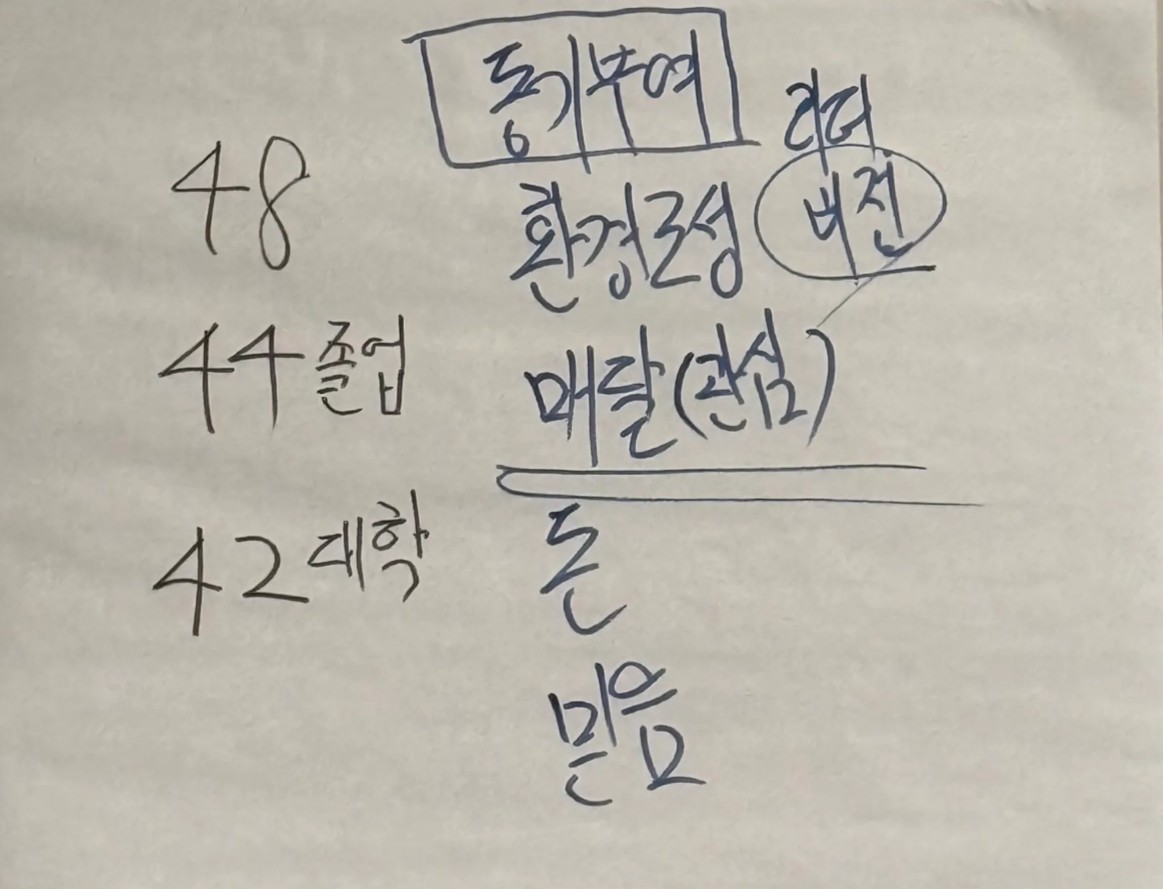 동기부여
리더
48
환경조성
비전
44 졸업
매달(관심)
42 대학
돈
믿음